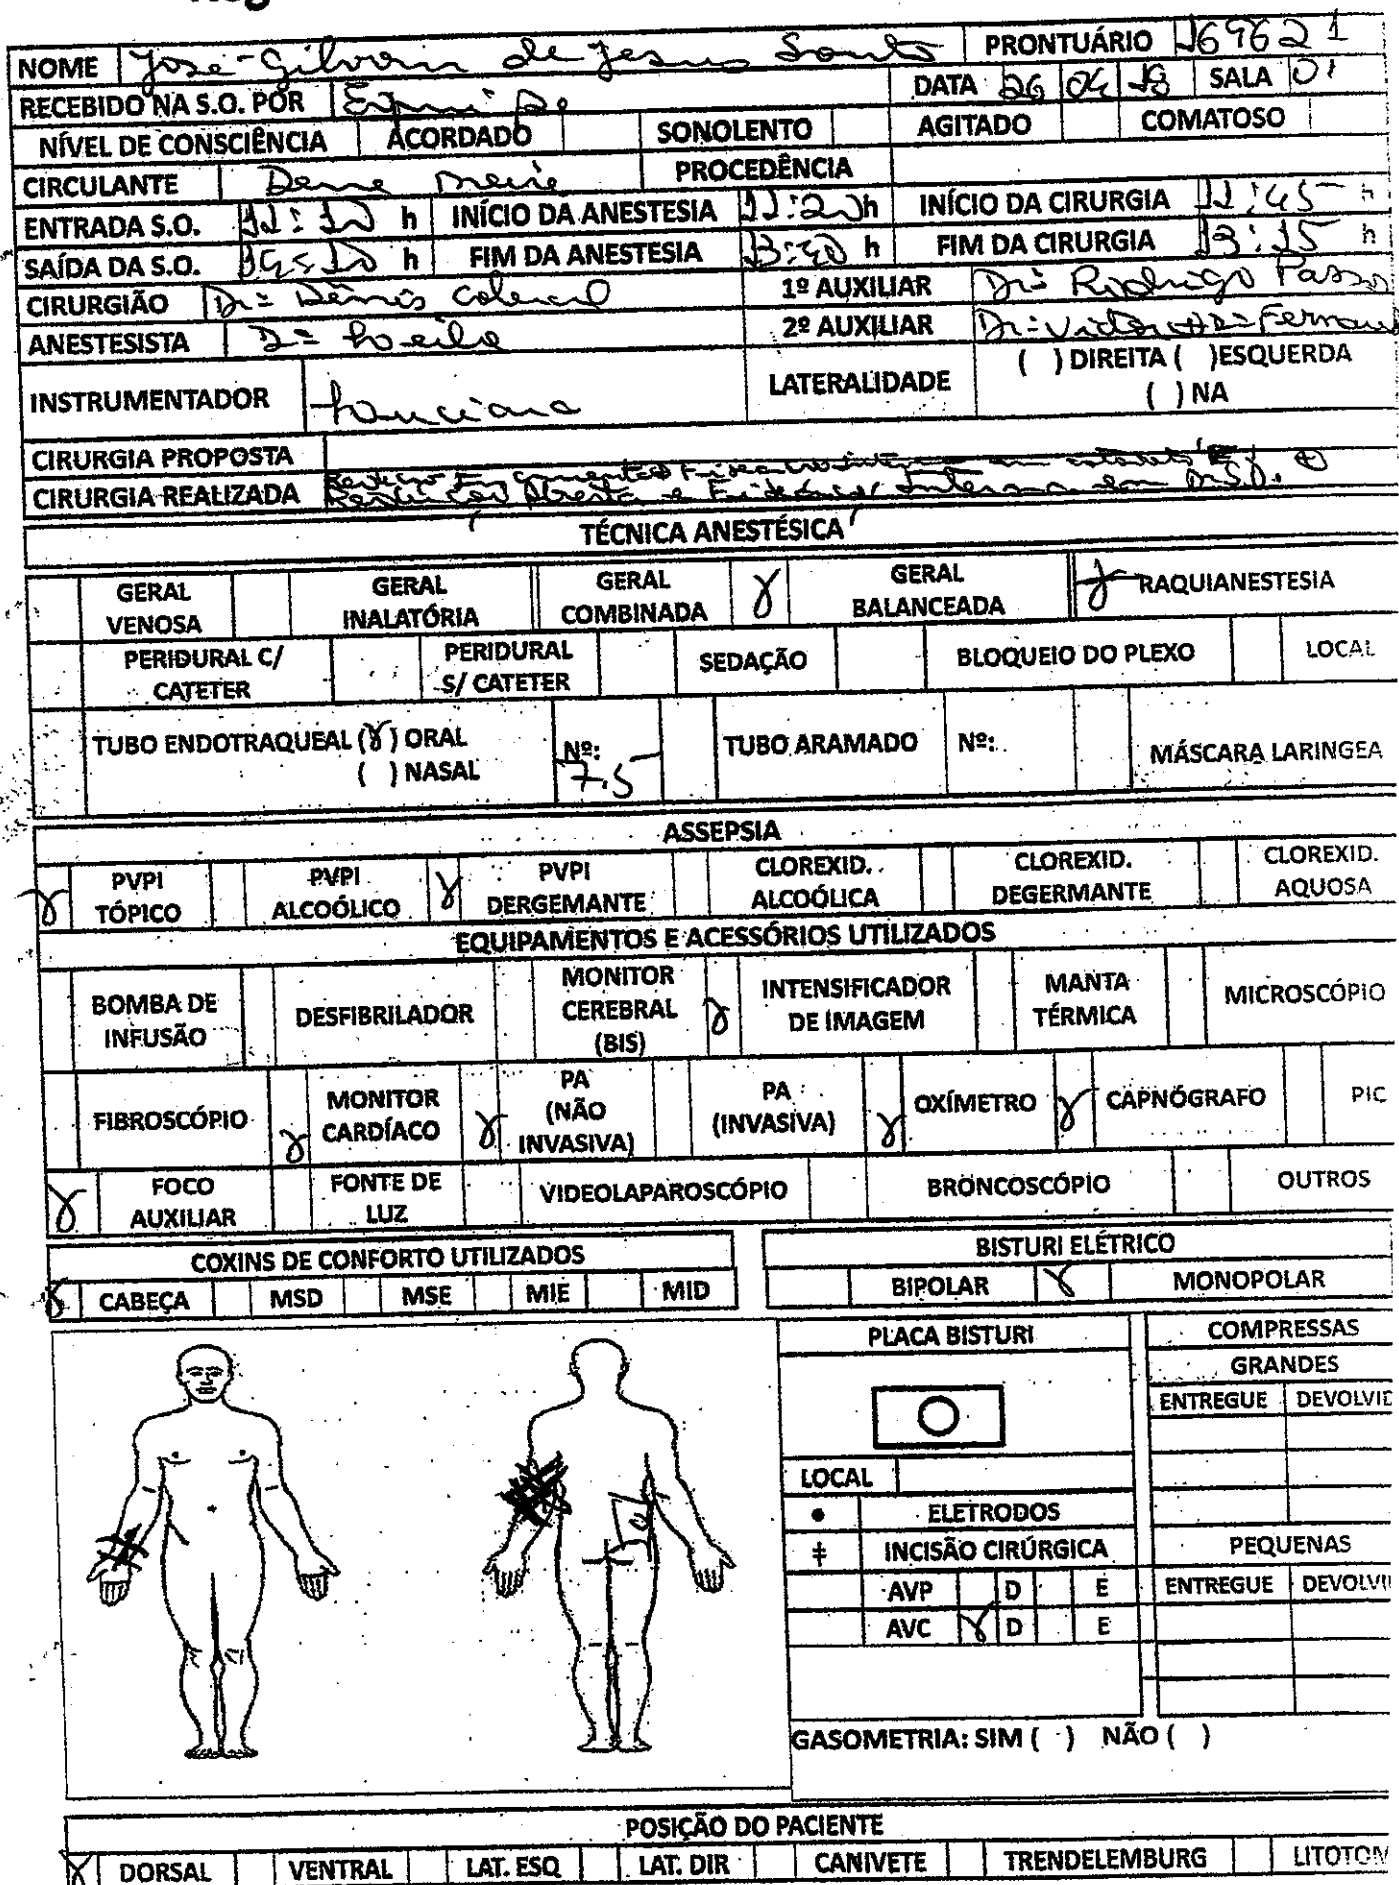 NOME José Gilvan de Jesus Santos PRONTUÁRIO 169621
RECEBIDO NA S.O. POR DATA 26 04 18 SALA 01
NÍVEL DE CONSCIÊNCIA ACORDADO SONOLENTO AGITADO COMATOSO
CIRCULANTE PROCEDÊNCIA
ENTRADA S.O. 11:10 h INÍCIO DA ANESTESIA 11:20 h INÍCIO DA CIRURGIA 11:45 h
SAÍDA DA S.O. h FIM DA ANESTESIA 13:40 h FIM DA CIRURGIA 13:15 h
CIRURGIÃO Drº Dênis Cabral 1º AUXILIAR Drº Rodrigo Passos
ANESTESISTA 2º AUXILIAR Drº Victor
INSTRUMENTADOR Luciana LATERALIDADE ( ) DIREITA ( )ESQUERDA
( ) NA
CIRURGIA PROPOSTA
CIRURGIA REALIZADA
TÉCNICA ANESTÉSICA
GERAL VENOSA GERAL INALATÓRIA GERAL COMBINADA GERAL BALANCEADA RAQUIANESTESIA
PERIDURAL C/ CATETER PERIDURAL S/ CATETER SEDAÇÃO BLOQUEIO DO PLEXO LOCAL
TUBO ENDOTRAQUEAL (X) ORAL Nº: 7,5 TUBO ARAMADO Nº: MÁSCARA LARINGEA
( ) NASAL
ASSEPSIA
PVPI TÓPICO PVPI ALCOÓLICO PVPI DERGEMANTE CLOREXID. ALCOÓLICA CLOREXID. DEGERMANTE CLOREXID. AQUOSA
EQUIPAMENTOS E ACESSÓRIOS UTILIZADOS
BOMBA DE INFUSÃO DESFIBRILADOR MONITOR CEREBRAL (BIS) INTENSIFICADOR DE IMAGEM MANTA TÉRMICA MICROSCÓPIO
FIBROSCÓPIO MONITOR CARDÍACO PA (NÃO INVASIVA) PA (INVASIVA) OXÍMETRO CAPNÓGRAFO PIC
FOCO AUXILIAR FONTE DE LUZ VIDEOLAPAROSCÓPIO BRONCOSCÓPIO OUTROS
COXINS DE CONFORTO UTILIZADOS BISTURI ELÉTRICO
CABEÇA MSD MSE MIE MID BIPOLAR MONOPOLAR
PLACA BISTURI COMPRESSAS
GRANDES
ENTREGUE DEVOLVID
LOCAL
ELETRODOS
INCISÃO CIRÚRGICA PEQUENAS
AVP D E ENTREGUE DEVOLVI
AVC X D E
GASOMETRIA: SIM ( ) NÃO ( )
POSIÇÃO DO PACIENTE
X DORSAL VENTRAL LAT. ESQ LAT. DIR CANIVETE TRENDELEMBURG LITOTOM